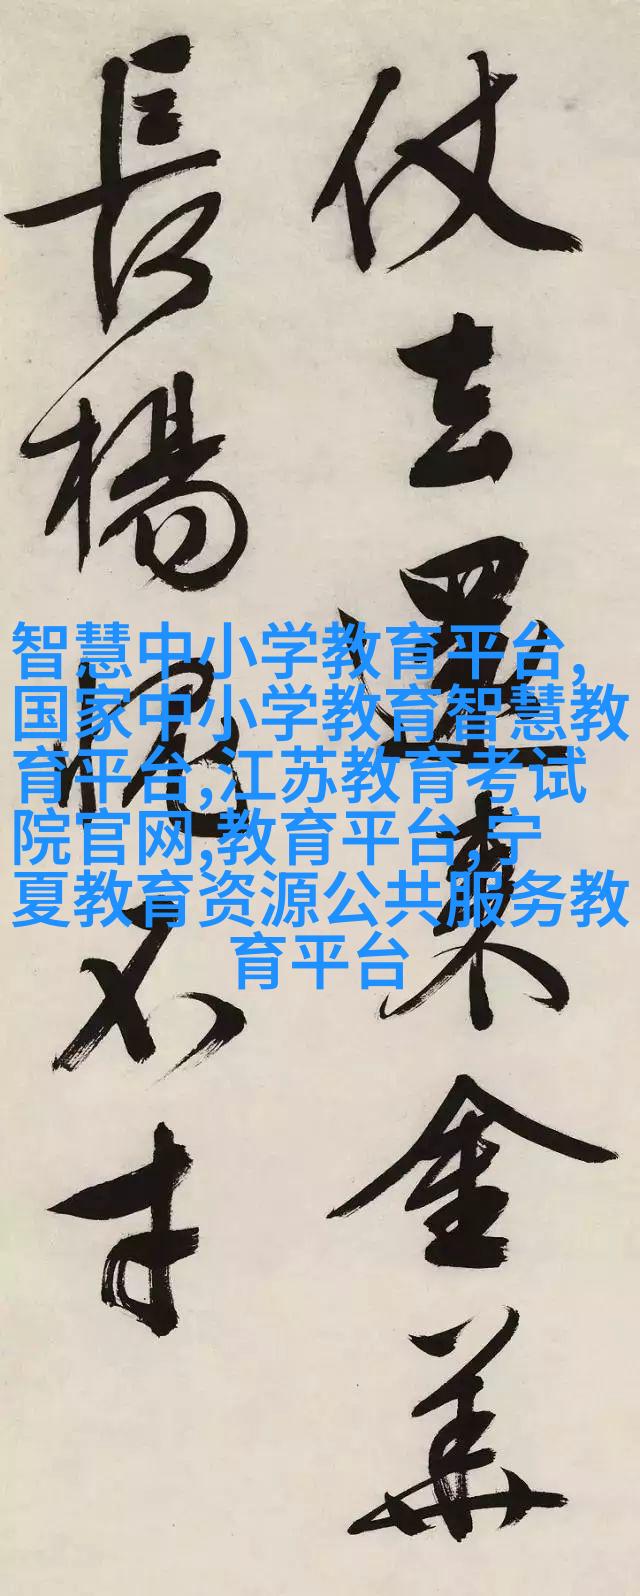 仗去還來金華
長楊愧不才
智慧中小学教育平台,
国家中小学教育智慧教
育平台,江苏教育考试
院官网,教育平台,宁
夏教育资源公共服务教
育平台